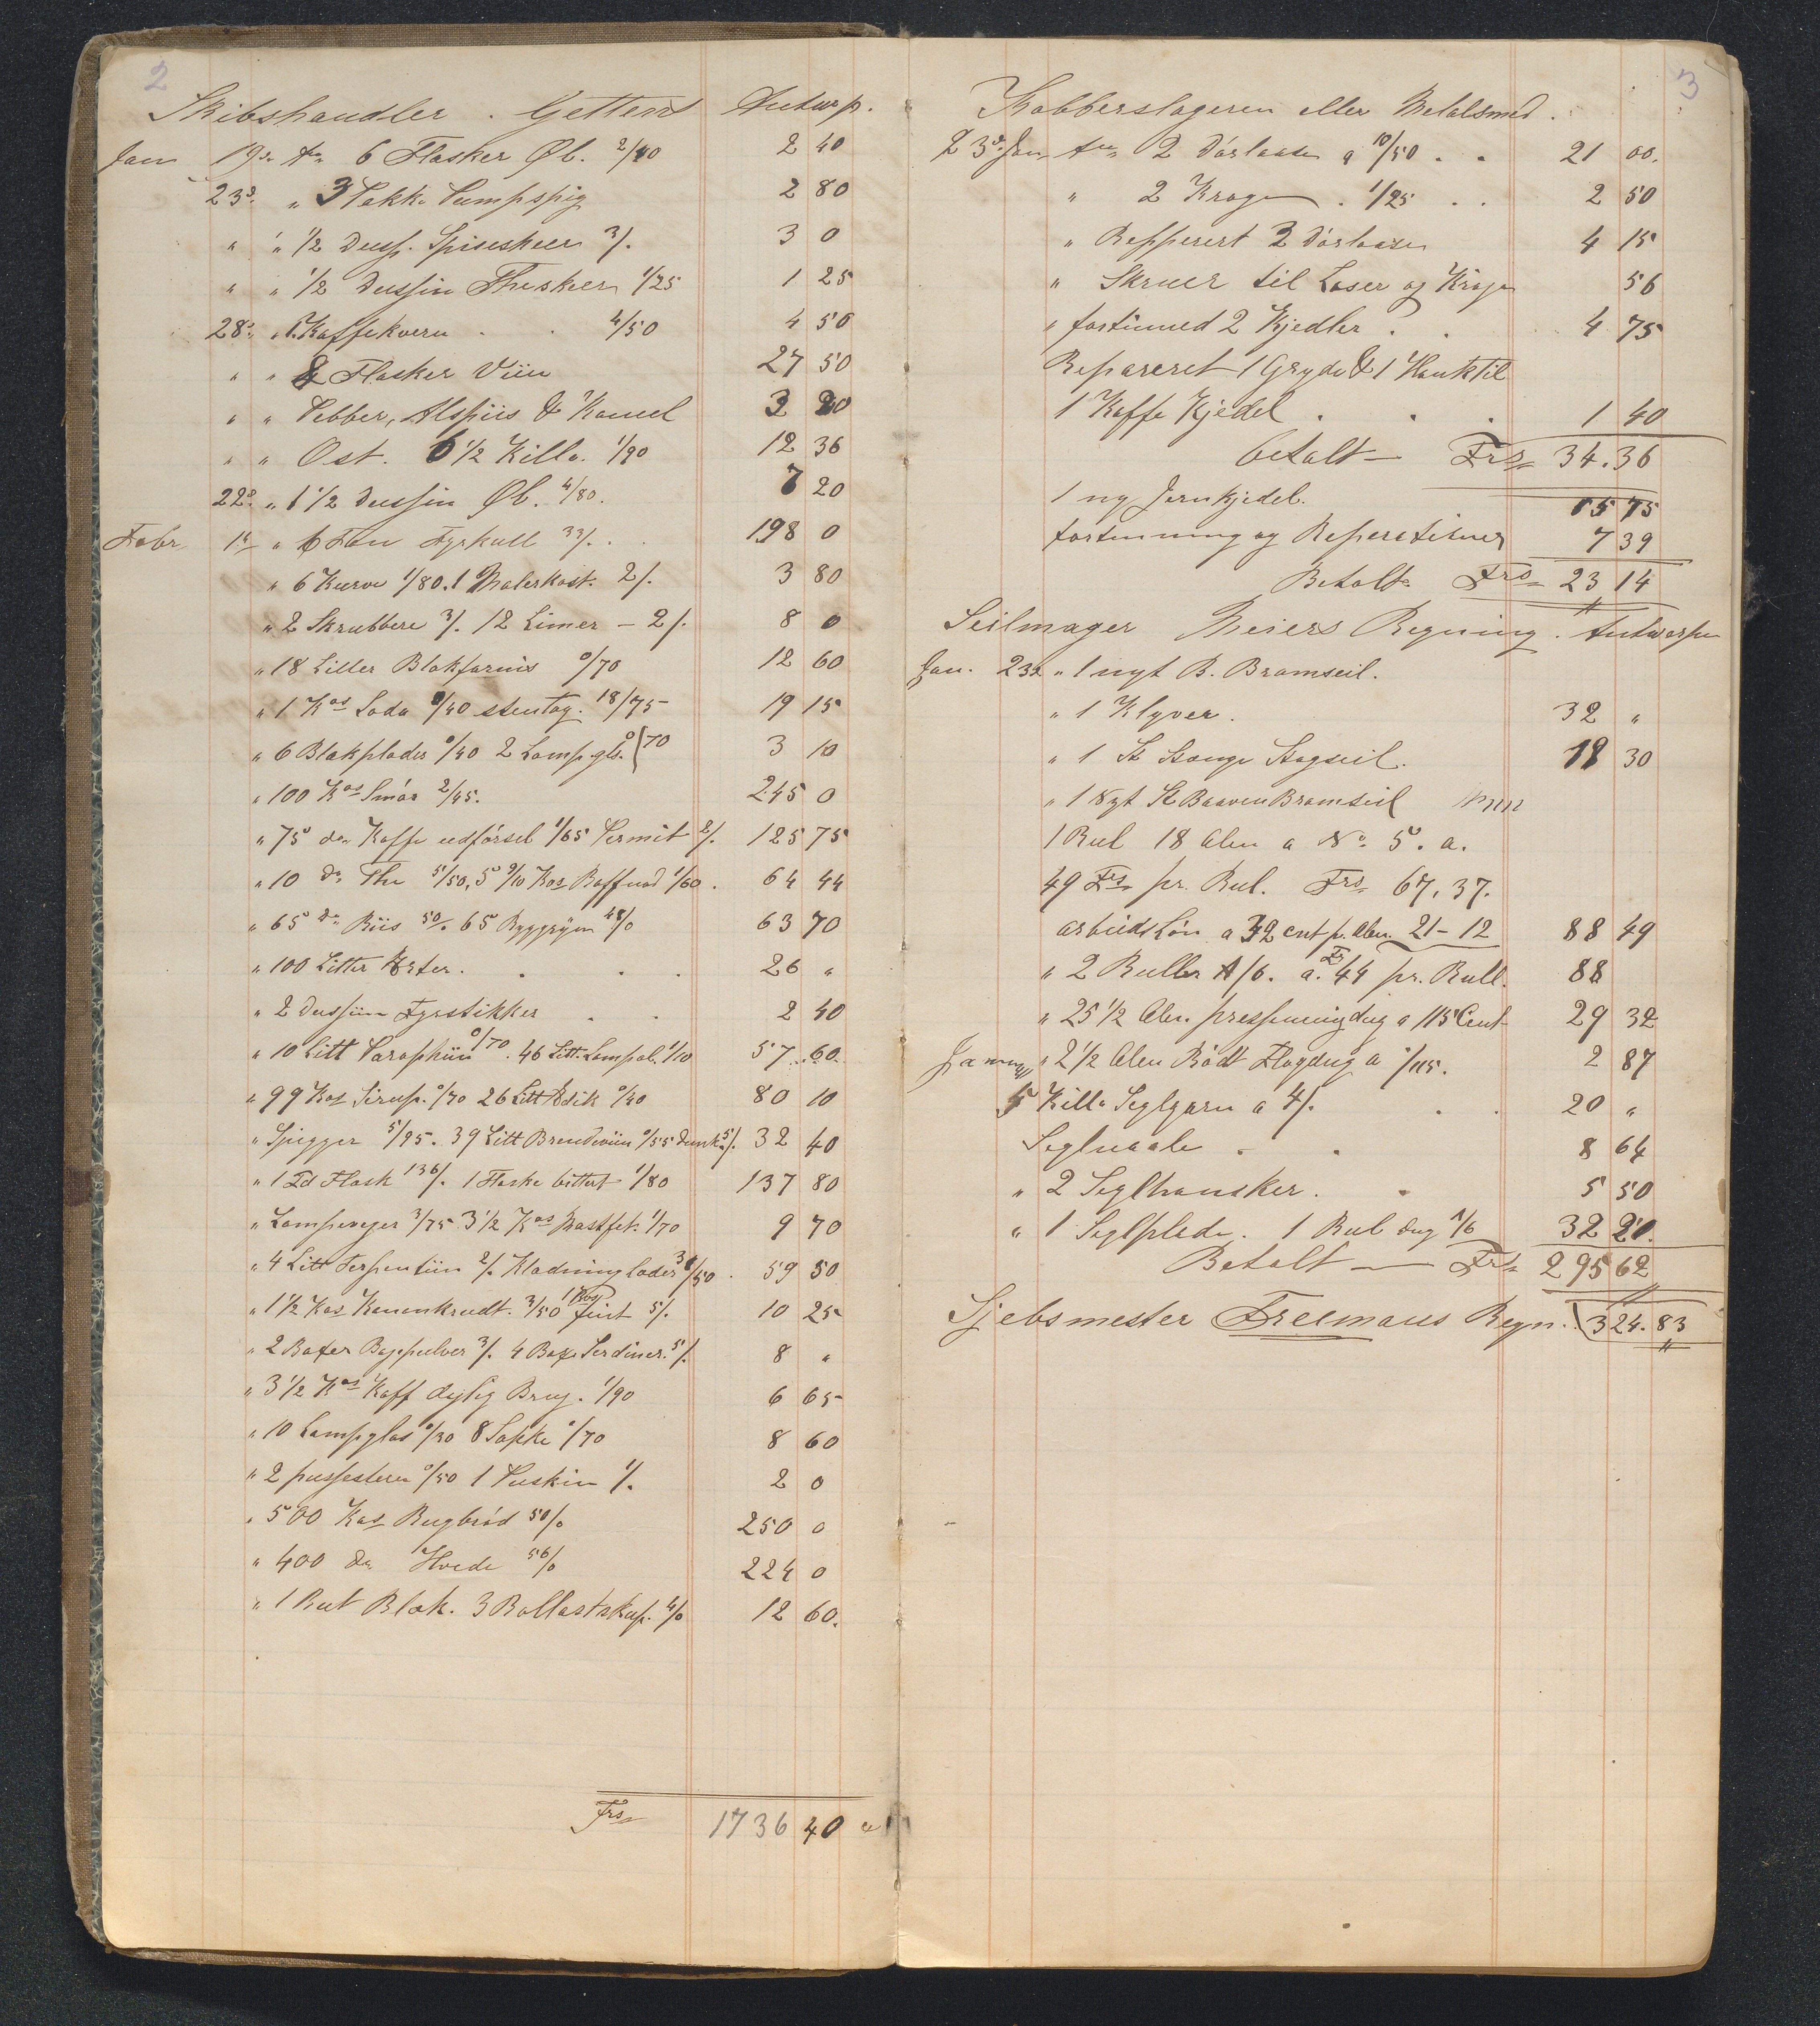 2
Skibshandler . Gettens Antwrp.
Jan 19de An 6 Flasker Øl. 2/40 2 40
23d. " 3 Pakke Pumpspig 2 80
" " 1/2 Duss. Spiseskeer 3/. 3 0
" " 1/2 Dussin Theskeer 1/25 1 25
28d. " 1 Kaffekvern . . 4/50 4 50
" " 8 Flasker Viin 27 50
" " Pebber, Alspiis & Kanel 3 20
" " Ost. 6 1/2 Killo. 1/90 12 36
22d. " 1 1/2 Dussin Øl. 4/80. 7 20
Febr 1st " 6 Ton Fyrkull 33/. . . 198 0
" 6 Kurve 1/80. 1 Malerkost. 2/. 3 80
" 2 Skrubbere 3/. 12 Limer – 2/. 8 0
" 18 Litter Blakfarnis 0/70 12 60
" 1 Kos Soda 0/40 stentøg. 18/75 19 15
" 6 Blakplader 0/40 2 Lampgls. 0/70 3 10
" 100 Kos Smör 2/45. 245 0
" 75 do Kaffe udförsel 1/65 Permit 2/. 125 75
" 10 do The 5/50, 5 9/10 Kos Boffnad 1/60 . 64 44
" 65 do Riis 50/0 65 Byggryn 48/0 63 70
" 100 Litter Erter. . . . 26 "
" 2 Dussiin Fyrstikker . . 2 40
" 10 Litt Paraphiin 0/70 . 46 Litt. Lampol. 1/10 57 . 60.
" 99 Kos Sirup. 0/70 26 Litt Edik 0/40 80 10
" Spigger 5/95. 39 Litt Brendeviin 0/55 dunk 5/. 32 40
" 1 Fd Flask 136/. 1 Flaske bittert 1/80 137 80
" Lampeveger 3/75 3 1/2 Kos Mastfet. 1/70 9 70
" 4 Litt Terpentiin 2/. Kladninglader 3 /50 . 59 50
" 1 1/2 Kos Kanonkrudt. 3/50 1 Kog fint 5/. 10 25
" 2 Boxer Bagepulver 3/. 4 Box Serdiner. 5/. 8 "
" 3 1/2 Kos Kaff dylig Brug. 1/90 6 65
" 10 Lampglas 0/30 8 Sopke 0/70 8 60
" 2 pussesteen 0/50 1 Puskin 1/. 2 0
" 500 Kos Rugbröd 50/0 250 0
" 400 do Hvede 56/0 224 0
" 1 Rut Blok. 3 Ballastskup. 4/0 12 60.
Frs 1736 40
3
Kobberslageren eller Metalsmed .
23d Jan An 2 dörlaase a 10/50 . . 21 00.
" 2 Kroge . 1/25 . . 2 50
" Repperert 2 dörlaase 4 15
" Skruer til Laser og Kroge 56
" fortinned 2 Kjedler . . 4 75
Repareret 1 Gryde & 1 Hank til
1 Kaffe Kjedel . . . 1 40
betalt – Frs 34.36
1 ny Jernkjedel. 15 75
fortinning og Reperationer 7 39
Betalt Frs 23 14
Seilmager Meiers Regning . Antwerpen
Jan. 23d " 1 nyt B. Bramseil.
" 1 Klyver. 32 "
" 1 St Stange Stagseil. 18 30
" 1 Nyt St Baaven Bramseil
1 Rul 18 Alen a No. 5. a.
49 Frs pr. Rul. Frs 67, 37.
arbeidslön a 32 cnt p. Alen. 21–12 88 49
" 2 Ruller A/6. a. Fr 44 pr. Rull. 88
" 25 1/2 Alen pressenningdug a 115 Cent 29 32
" 2 1/2 Alen Rödt Flagdug a 1/115. 2 87
5 Killo Seglgarn a 4/. . . 20 "
Seglnaale . . 8 64
" 2 Seglhansker. . 5 50
" 1 Seglplade. 1 Rul dug A/6 32 20.
Betalt — Frs 295 62
Sjebsmester Freemans Regn. 324.83